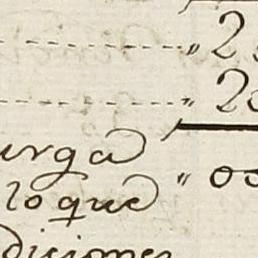 " 2
" 20
urga
lo que " 0
diciones